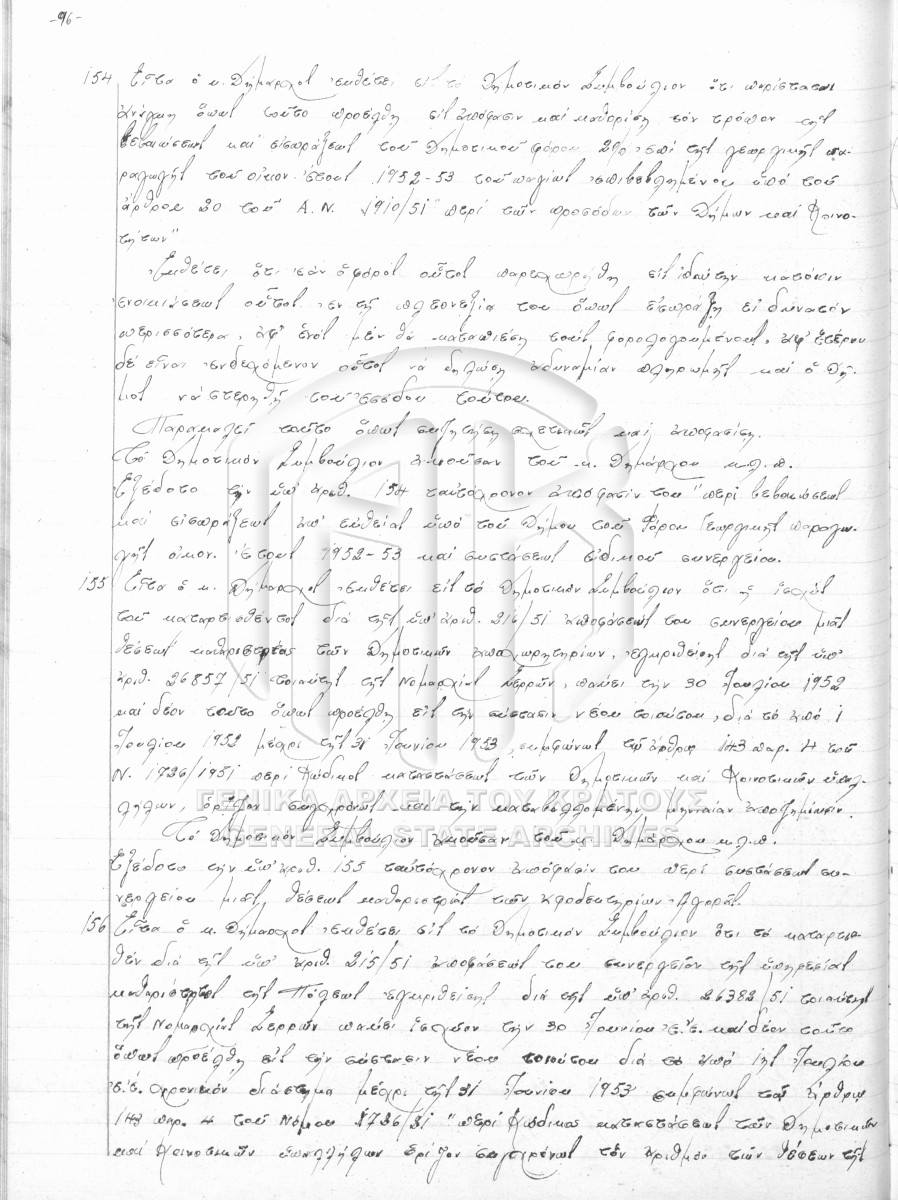 -96-
154 Εἶτα ὁ κ. Δήμαρχος ἐκθέτει εἰς τό Δημοτικόν Συμβούλιον ὅτι παρίσταται
ἀνάγκη ὅπως τοῦτο προσέλθη εἰς ἀπόφασιν καί καθορίση τόν τρόπον τῆς
βεβαιώσεως καί εἰσπράξεως τοῦ Δημοτικοῦ φόρου 2% ἐπί τῆς γεωργικῆς πα-
ραγωγῆς τοῦ οἰκον. ἔτους 1952-53 τοῦ παγίως ἐπιβεβλημένου ὑπό τοῦ
ἄρθρου 20 τοῦ Α.Ν. 1910/51 "περί τῶν προσόδων τῶν Δήμων καί Κοινο-
τήτων"
Ἐκθέτει ὅτι ἐάν ὁ φόρος οὗτος παραχωρηθῆ εἰς ἰδιώτην κατόπιν
ἐνοικιάσεως οὗτος ἐν τῆ πλεονεξία του ὅπως εἰσπράξη εἰ δυνατόν
περισσότερα, ἀφ' ἑνός μέν θά καταπιέση τούς φορολογουμένους, ἀφ' ἑτέρου
δέ εἶναι ἐνδεχόμενον οὗτος νά δηλώση ἀδυναμίαν πληρωμῆς καί ὁ Δῆ-
μος νά στερηθῆ τοῦ ἐσόδου τούτου.
Παρακαλεῖ τοῦτο ὅπως συζητήση σχετικῶς καί ἀποφασίση.
Τό Δημοτικόν Συμβούλιον ἀκοῦσαν τοῦ κ. Δημάρχου κ.λ.π.
Ἐξέδοτο τήν ὑπ' ἀριθ. 154 ταὐτόχρονον ἀπόφασίν του "περί βεβαιώσεως
καί εἰσπράξεως ἀπ' εὐθείας ὑπό τοῦ Δήμου τοῦ Φόρου Γεωργικῆς παραγω-
γῆς οἰκον. ἔτους 1952-53 καί συστάσεως εἰδικοῦ συνεργείου.
155 Εἶτα ὁ κ. Δήμαρχος ἐκθέτει εἰς τό Δημοτικόν Συμβούλιον ὅτι ἡ ἰσχύς
τοῦ καταρτισθέντος διά τῆς ὑπ' ἀριθ. 216/51 ἀποφάσεως του συνεργείου μιᾶς
θέσεως καθαριστρίας τῶν Δημοτικῶν ἀποχωρητηρίων, ἐγκριθείσης διά τῆς ὑπ'
ἀριθ. 26857/51 τοιαύτης τῆς Νομαρχίας Σερρῶν, παύει τήν 30 Ἰουνίου 1952
καί δέον τοῦτο ὅπως προέλθη εἰς τήν σύστασιν νέου τοιούτου, διά τό ἀπό 1
Ἰουλίου 1952 μέχρι τῆς 31 Ἰουνίου 1953, συμφώνως τῷ ἄρθρῳ 143 παρ. 4 τοῦ
Ν. 1726/1951 περί Κώδικος καταστάσεως τῶν Δημοτικῶν καί Κοινοτικῶν ὑπαλ-
λήλων, ὁρίζον συγχρόνως καί τήν καταβαλλομένην μηνιαίαν ἀποζημίωσιν.
Τό Δημοτικόν Συμβούλιον ἀκοῦσαν τοῦ κ. Δημάρχου κ.λ.π.
Ἐξέδοτο τήν ὑπ' ἀριθ. 155 ταὐτόχρονον ἀπόφασίν του περί συστάσεως συ-
νεργείου μιᾶς θέσεως καθαριστρίας τῶν ἀφοδευτηρίων Ἀγορᾶς.
156 Εἶτα ὁ κ. Δήμαρχος ἐκθέτει εἰς τό Δημοτικόν Συμβούλιον ὅτι τό καταρτισ-
θέν διά τῆς ὑπ' ἀριθ. 215/51 ἀποφάσεως του συνεργεῖον τῆς ὑπηρεσίας
καθαριότητος τῆς Πόλεως ἐγκριθείσης διά τῆς ὑπ' ἀριθ. 26382/51 τοιαύτης
τῆς Νομαρχίας Σερρῶν παύει ἰσχύον τήν 30 Ἰουνίου ἐ.ἔ. καί δέον τοῦτο
ὅπως προέλθη εἰς τήν σύστασιν νέου τοιούτου διά τό ἀπό 1ης Ἰουλίου
ἐ.ἔ. χρονικόν διάστημα μέχρι τῆς 31 Ἰουνίου 1953 συμφώνως τῷ ἄρθρῳ
143 παρ. 4 τοῦ Νόμου 1726/51 "περί Κώδικος καταστάσεως τῶν Δημοτικῶν
καί Κοινοτικῶν ὑπαλλήλων ὁρίζον συγχρόνως τόν ἀριθμόν τῶν θέσεων τῆς
ΓΕΝΙΚΑ ΑΡΧΕΙΑ ΤΟΥ ΚΡΑΤΟΥΣ
GENERAL STATE ARCHIVES